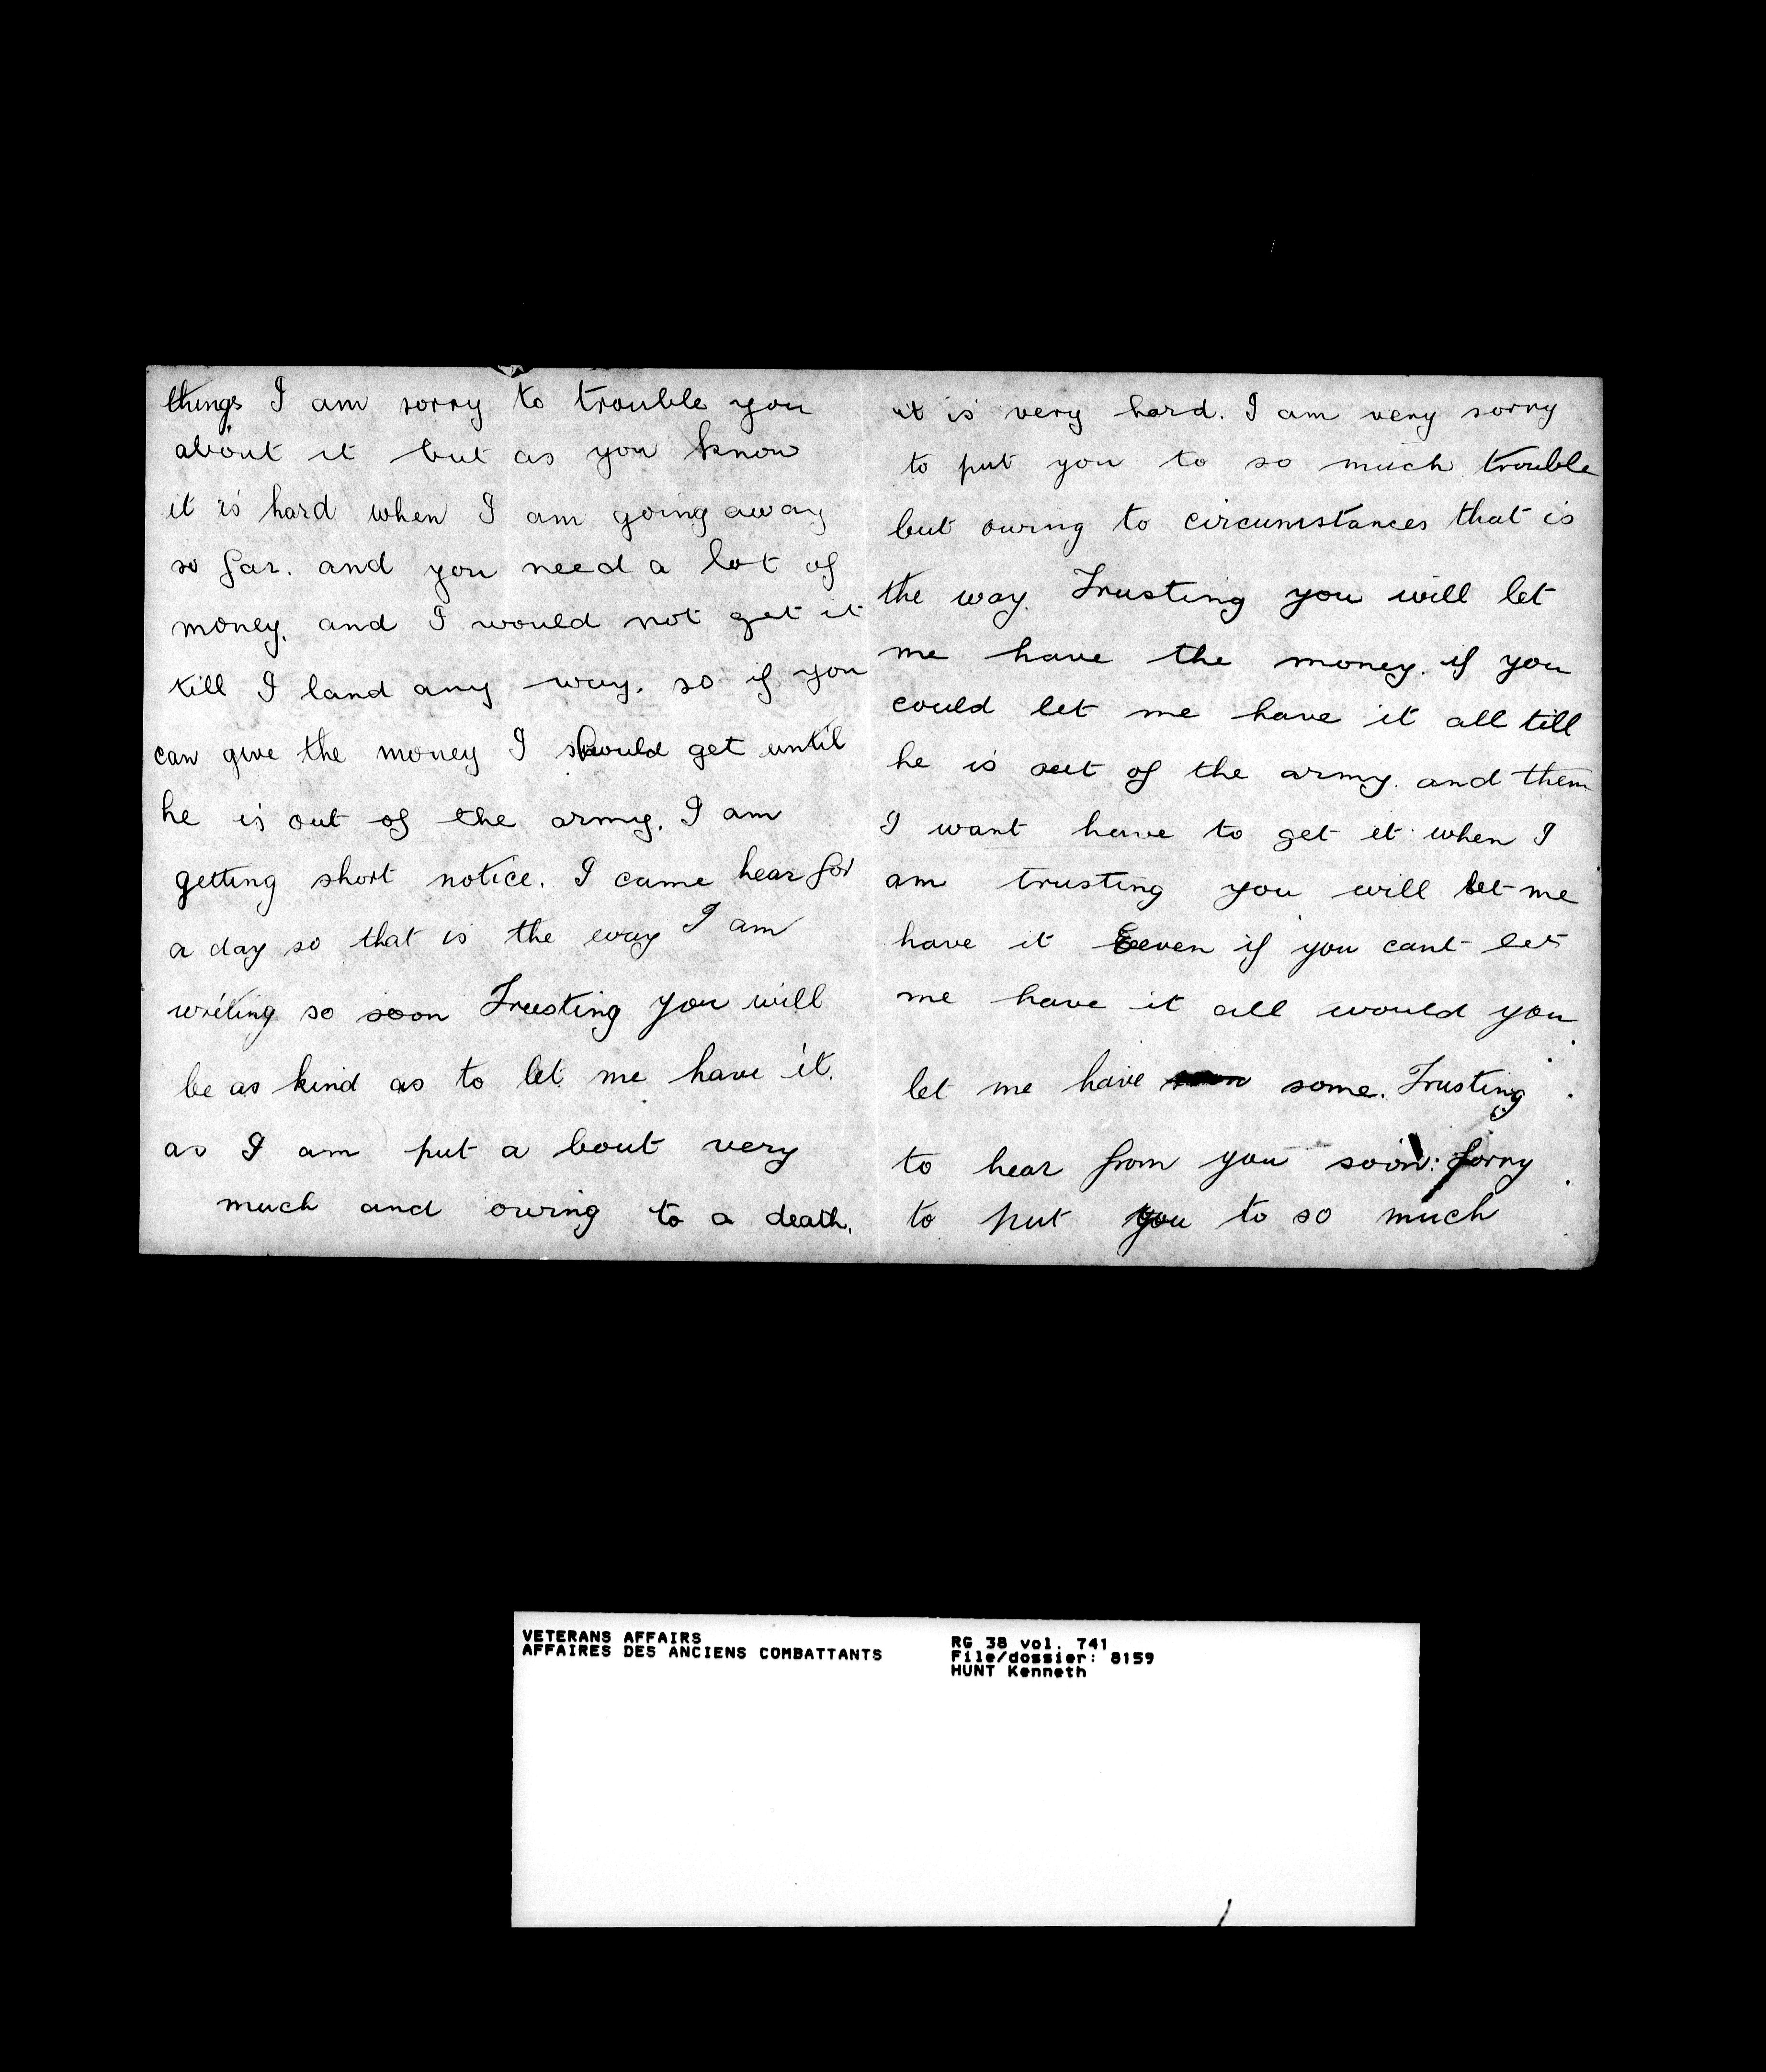 things I am sorry to trouble you
about it but as you know
it is hard when I am going away
so far. and you need a lot of
money. and I would not get it
till I land any way. so if you
can give the money I should get until
he is out of the army. I am
getting short notice. I came hear for
a day so that is the way I am
writing so soon Trusting you will
be as kind as to let me have it.
as I am put a bout very
much and owing to a death.
it is very hard. I am very sorry
to put you to so much trouble
but owing to circumstances that is
the way. Trusting you will let
me have the money. if you
could let me have it all till
he is out of the army. and them
I want have to get it when I
am trusting you will let me
have it Eeven if you cant let
me have it all would you
let me have some. Trusting
to hear from you soon: Sorry
to put you to so much
VETERANS AFFAIRS
AFFAIRES DES ANCIENS COMBATTANTS
RG 38 vol. 741
File/dossier: 8159
HUNT Kenneth